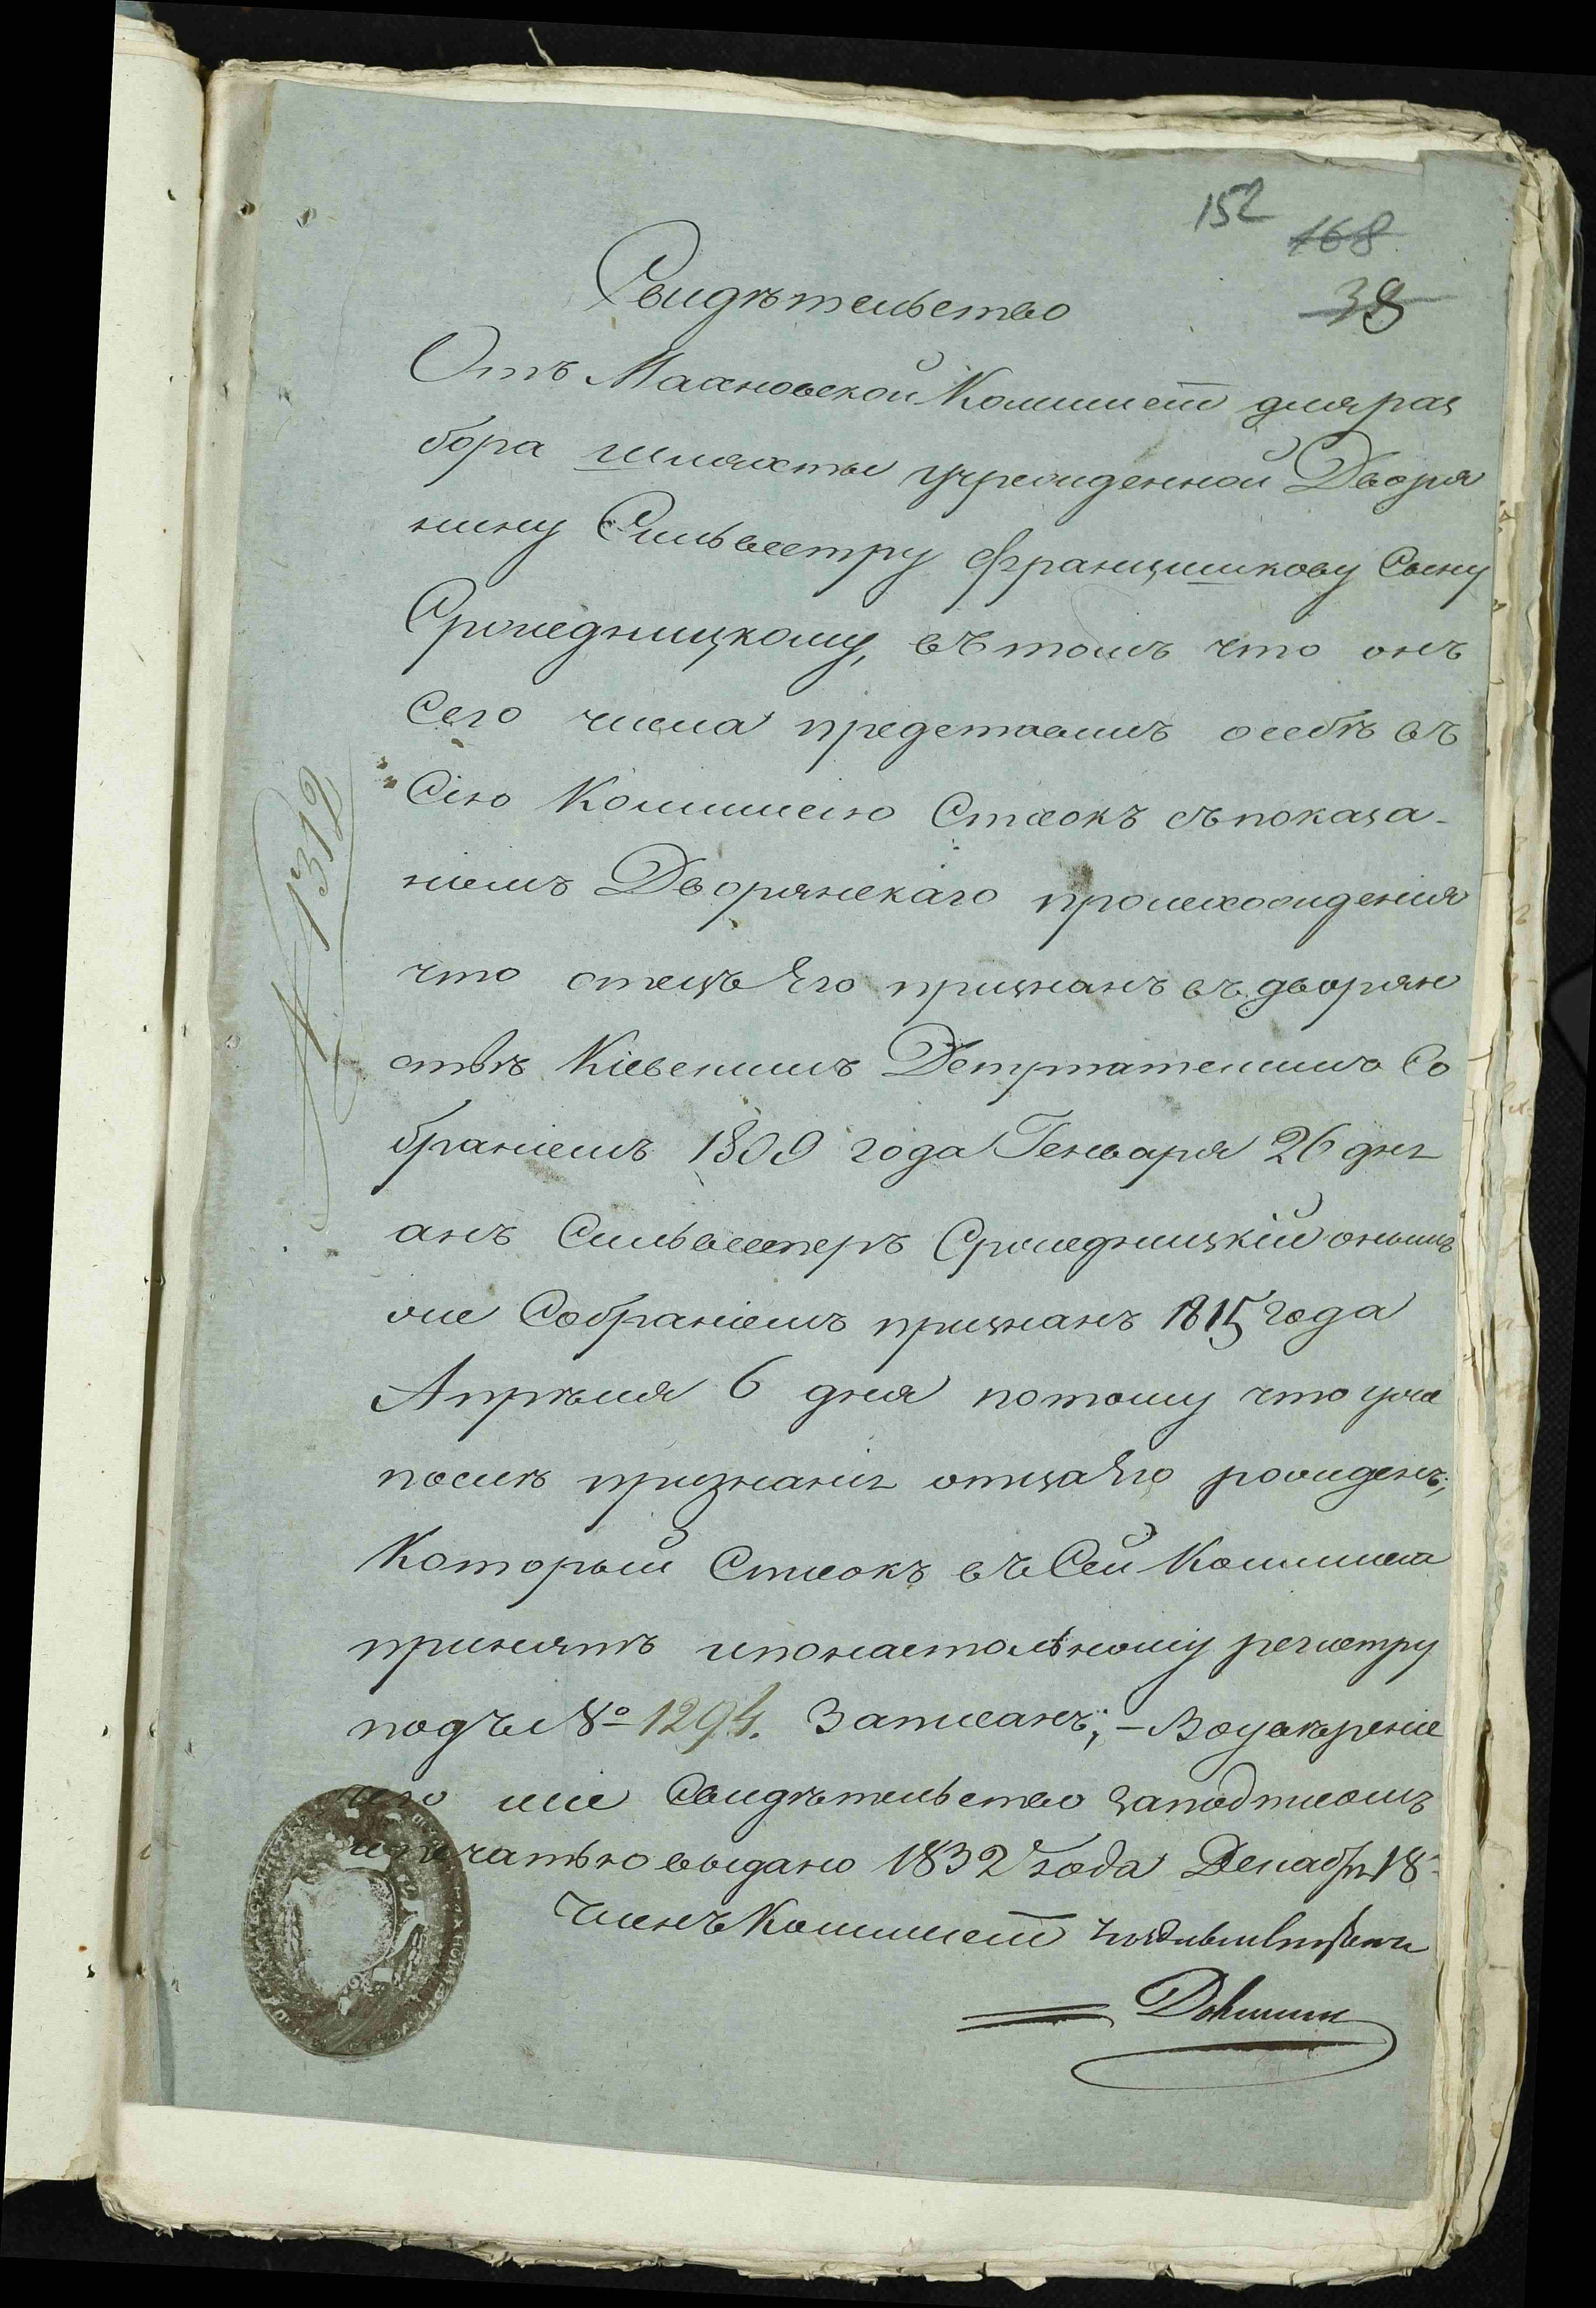 152
168
38
Свидѣтельство
Отъ Махновской Комиссіи для раз
бора шляхты учрежденной Дворя
нину Сильвестру Францишкову Сыну
Средницкому, въ томъ что онъ
Сего числа представилъ о себѣ въ
Сію Коммисію Списокъ съ показа-
ніемъ Дворянскаго происхожденія
что отецъ Его признанъ въ дворян
ствѣ Кіевскимъ Депутатскимъ Со
браніемъ 1809 года Генваря 26 дня
а нъ Сильвестеръ Средницкій онымъ
же Собраніемъ признанъ 1815 года
Апрѣля 6 дня потому что уже
послѣ признанія отца Его рожденъ;
Который Списокъ въ Сей Коммисіи
принятъ и по настольному регистру
подъ № 1294. Записанъ; – Во увѣреніе
чего сіе Свидѣтельство за подписомъ
и печатью выдано 1832 года Декабря 18
Членъ Коммисіи
№ 1312